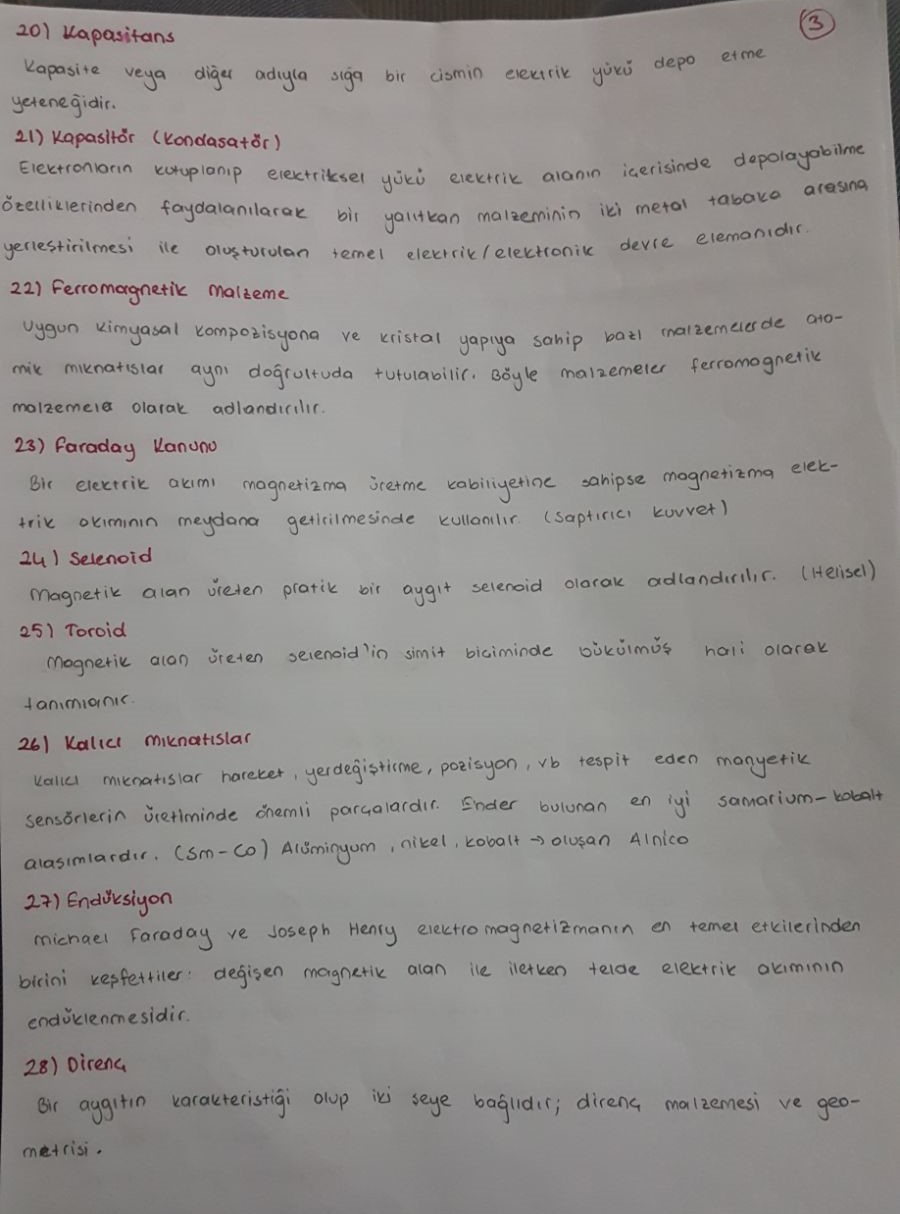 3
20) Kapasitans
Kapasite veya diğer adıyla sığa bir cismin elektrik yükü depo etme
yeteneğidir.
21) Kapasitör (Kondasatör)
Elektronların kutuplanıp elektriksel yükü elektrik alanın içerisinde depolayabilme
özelliklerinden faydalanılarak bir yalıtkan malzeminin iki metal tabaka arasına
yerleştirilmesi ile oluşturulan temel elektrik/elektronik devre elemanıdır.
22) Ferromagnetik Malzeme
Uygun kimyasal kompozisyona ve kristal yapıya sahip bazı malzemelerde ato-
mik mıknatıslar aynı doğrultuda tutulabilir. Böyle malzemeler ferromagnetik
malzemeler olarak adlandırılır.
23) Faraday Kanunu
Bir elektrik akımı magnetizma üretme kabiliyetine sahipse magnetizma elek-
trik akımının meydana getirilmesinde kullanılır. (saptırıcı kuvvet)
24) Selenoid
Magnetik alan üreten pratik bir aygıt selenoid olarak adlandırılır. (Helisel)
25) Toroid
Magnetik alan üreten selenoid'in simit biçiminde bükülmüş hali olarak
tanımlanır.
26) Kalıcı mıknatıslar
Kalıcı mıknatıslar hareket, yerdeğiştirme, pozisyon, vb tespit eden manyetik
sensörlerin üretiminde önemli parçalardır. Ender bulunan en iyi samarium-kobalt
alaşımlardır. (Sm-Co) Alüminyum, nikel, kobalt → oluşan Alnico
27) Endüksiyon
Michael Faraday ve Joseph Henry elektromagnetizmanın en temel etkilerinden
birini keşfettiler: değişen magnetik alan ile iletken telde elektrik akımının
endüklenmesidir.
28) Direnç
Bir aygıtın karakteristiği olup iki şeye bağlıdır; direnç malzemesi ve geo-
metrisi.